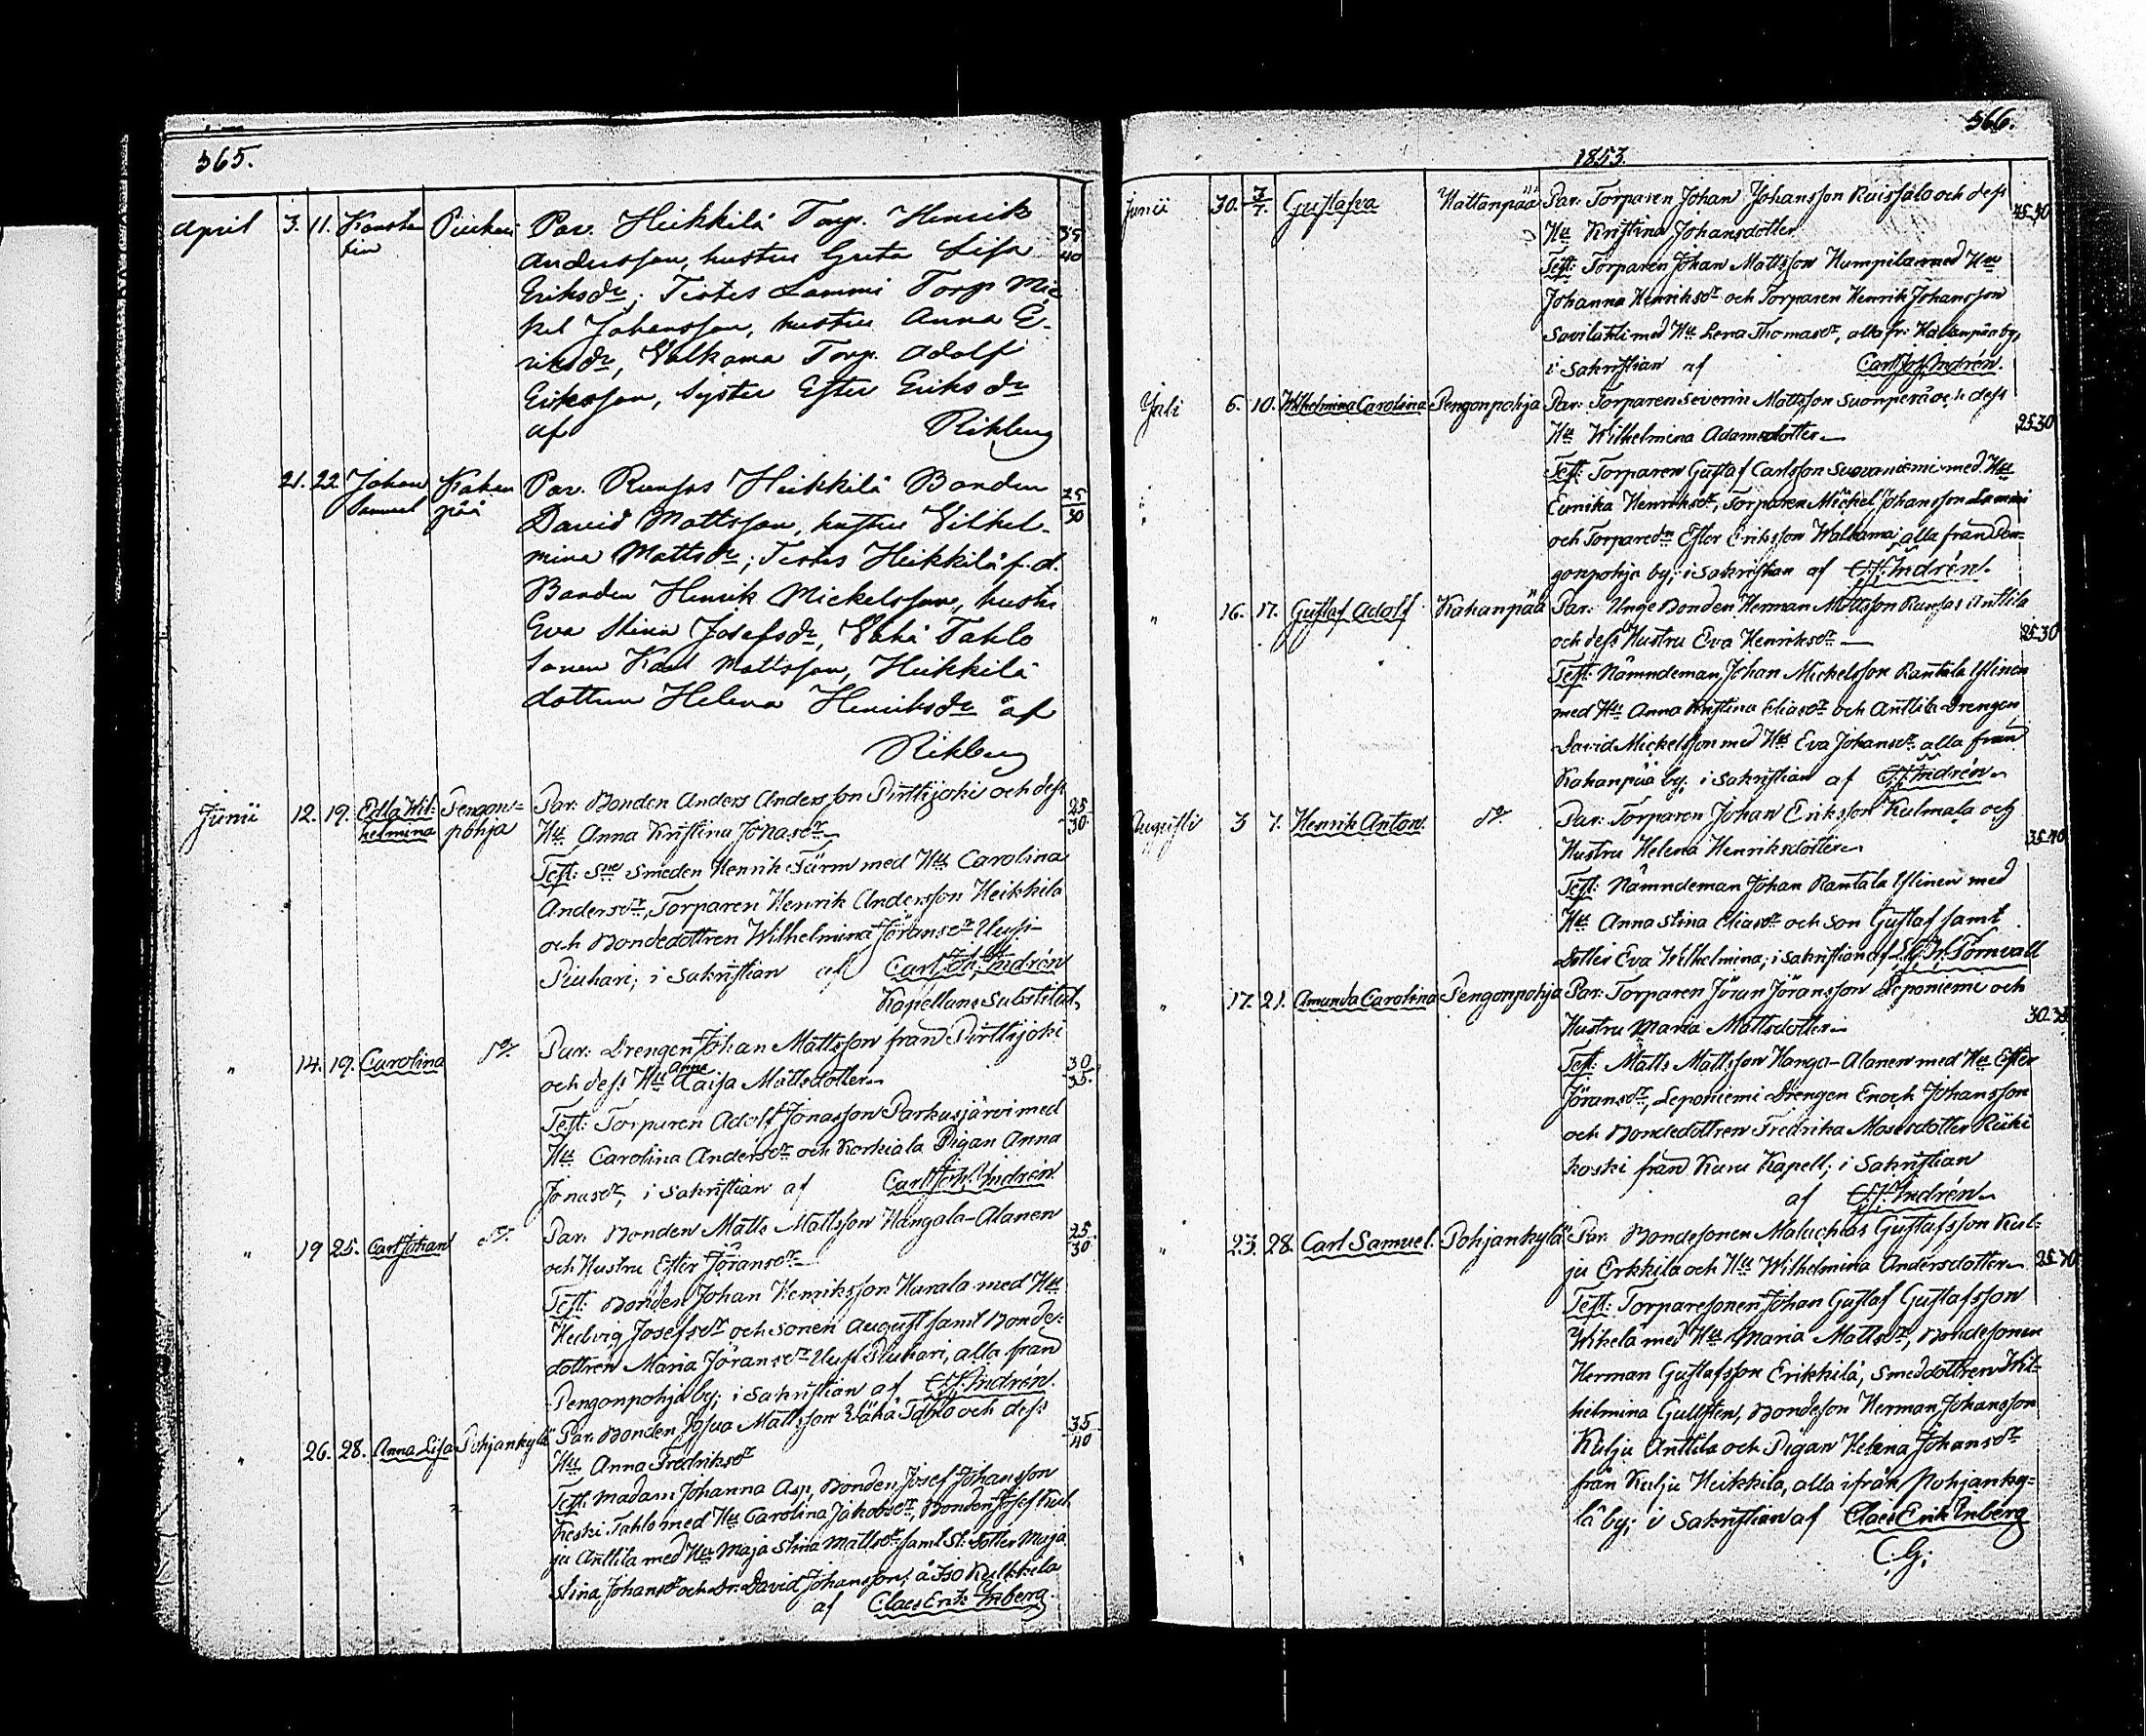 365.
April 3. 11. Konstan Piuhari Par. Heikkilä Torp. Henrik 35
tin Andersson, hustru Greta Lisa 40
Eriksdr; Testes Lammi Torp. Mic
kel Johansson, hustru Anna E-
riksdr, Valkama Torp. Adolf
Eriksson, syster Ester Eriksdr
af Rikberg
21. 22. Johan Kahan Par. Runsas Heikkilä Bonden 25
Samuel pää David Mattsson, hustru Vilhel- 30
mina Mattsdr; Testes Heikkilä f.d.
Bonden Henrik Mickelsson, hustru
Eva Stina Josefsdr, Vähä Tahlo
sonen Karl Mattsson, Heikkilä
dottren Helena Henriksdr af
Rikberg
Junii 12. 19. Edla Wil- Pengon- Par: Bonden Anders Andersson Pirttijoki och dess 25
helmina pohja Hu Anna Kristina Jönasdr 30
Test: Smeden Henrik Färm med Hu Carolina
Andersdr, Torparen Henrik Andersson Heikkilä
och Bondedottren Wilhelmina Jöransdr Uusi-
Piuhari; i Sakristian af Carl Joh. Indrén
Kapellans Substitut.
" 14. 19. Carolina do. Par: Drengen Johan Mattsson från Pirttijoki 30
och dess Hu Anna Caisa Mattsdotter 35.
Test: Torparen Adolf Jonasson Parkusjärvi med
Hu Carolina Andersdr och Korkiala Pigan Anna
Jonasdr, i Sakristian af Carl Joh. Indrén.
" 19 25. Carl Johan do. Par: Bonden Matts Mattsson Hangala-Alanen 25.
och Hustru Ester Jöransdr 30
Test: Bonden Johan Henriksson Harala med Hu
Hedvig Josefsdr och sonen August samt Bonde-
dottren Maria Jöransdr Uusi Piuhari, alla från
Pengonpohja by; i Sakristian af C.J. Indrén.
" 26. 28. Anna Lisa Pohjankylä Par. Bonden Josua Mattsson Vähä Tahlo och dess 35
Hu Anna Fredriksdr 40
Test: Madam Johanna Asp, Bonden Josef Johansson
Keski Tahlo med Hu Carolina Jakobsdr, Bonden Josef Kul-
ju Anttila med Hu Maja Stina Mattsdr samt St: dotter Maja
Stina Johansdr och Dr. David Johansson å Iso Kulkkila
af Claes Erik Enberg.
366.
1853.
Junii 30. 3/7. Gustafva Hattanpää Par: Torparen Johan Johansson Ruissalo och dess 25-30
Hu Kristina Johansdotter
Test: Torparen Johan Mattsson Humpila med Hu
Johanna Henriksdr och Torparen Henrik Johansson
Savilahti med Hu Lena Thomasdr, alla fr: Hattanpää by;
i Sakristian af Carl Joh. Indrén.
Juli 6. 10. Wilhelmina Carolina Pengonpohja Par: Torparen Severin Mattsson Suonperä och dess 25-30
Hu Wilhelmina Adamsdotter
Test: Torparen Gustaf Carlsson Suovaniemi med Hu
Eunika Henriksdr, Torparen Mickel Johansson Lammi
och Torparedn Ester Eriksson Walkama alla från Pen-
gonpohja by; i Sakristian af C.J. Indrén.
" 16. 17. Gustaf Adolf Kahanpää Par: Unge Bonden Herman Mattsson Runsas Anttila 25-30
och dess Hustru Eva Henriksdr
Test: Nämndeman Johan Mickelsson Rantala Ylinen
med Hu Anna Kristina Eliasdr och Anttila Drengen
David Mickelsson med Hu Eva Johansdr alla från
Kahanpää by; i Sakristian af C.J. Indrén
Augusti 3 7. Henrik Anton. do. Par: Torparen Johan Eriksson Kulmala och 35-40
Hustru Helena Henriksdotter
Test: Nämndeman Johan Rantala Ylinen med
Hu Anna Stina Eliasdr och Son Gustaf samt
dotter Eva Wilhelmina; i Sakristian af Törnvall
" 17. 21. Amanda Carolina Pengonpohja Par: Torparen Jöran Jöransson Leponiemi och 30-35
Hustru Maria Mattsdotter
Test: Matts Mattsson Hanga-Alanen med Hu Ester
Jöransdr, Leponiemi Drengen Enoch Johansson
och Bondedottren Fredrika Mosesdotter Riuki
koski från Kuru Kapell; i Sakristian
af C.J. Indrén
" 23. 28. Carl Samuel. Pohjankylä Par: Bondesonen Malachias Gustafsson Kul-
ju Erkkilä och Hu Wilhelmina Andersdotter 25-30
Test: Torparesonen Johan Gustaf Gustafsson
Wihelä med Hu Maria Mattsdr, Bondesonen
Herman Gustafsson Erkkilä, Smeddottren Wil-
helmina Gullsten, Bondeson Herman Johansson
Kulju Anttila och Pigan Helena Johansdr
från Kulju Heikkilä, alla ifrån Pohjanky-
lä by; i Sakristian af Claes Erik Enberg
C.G;